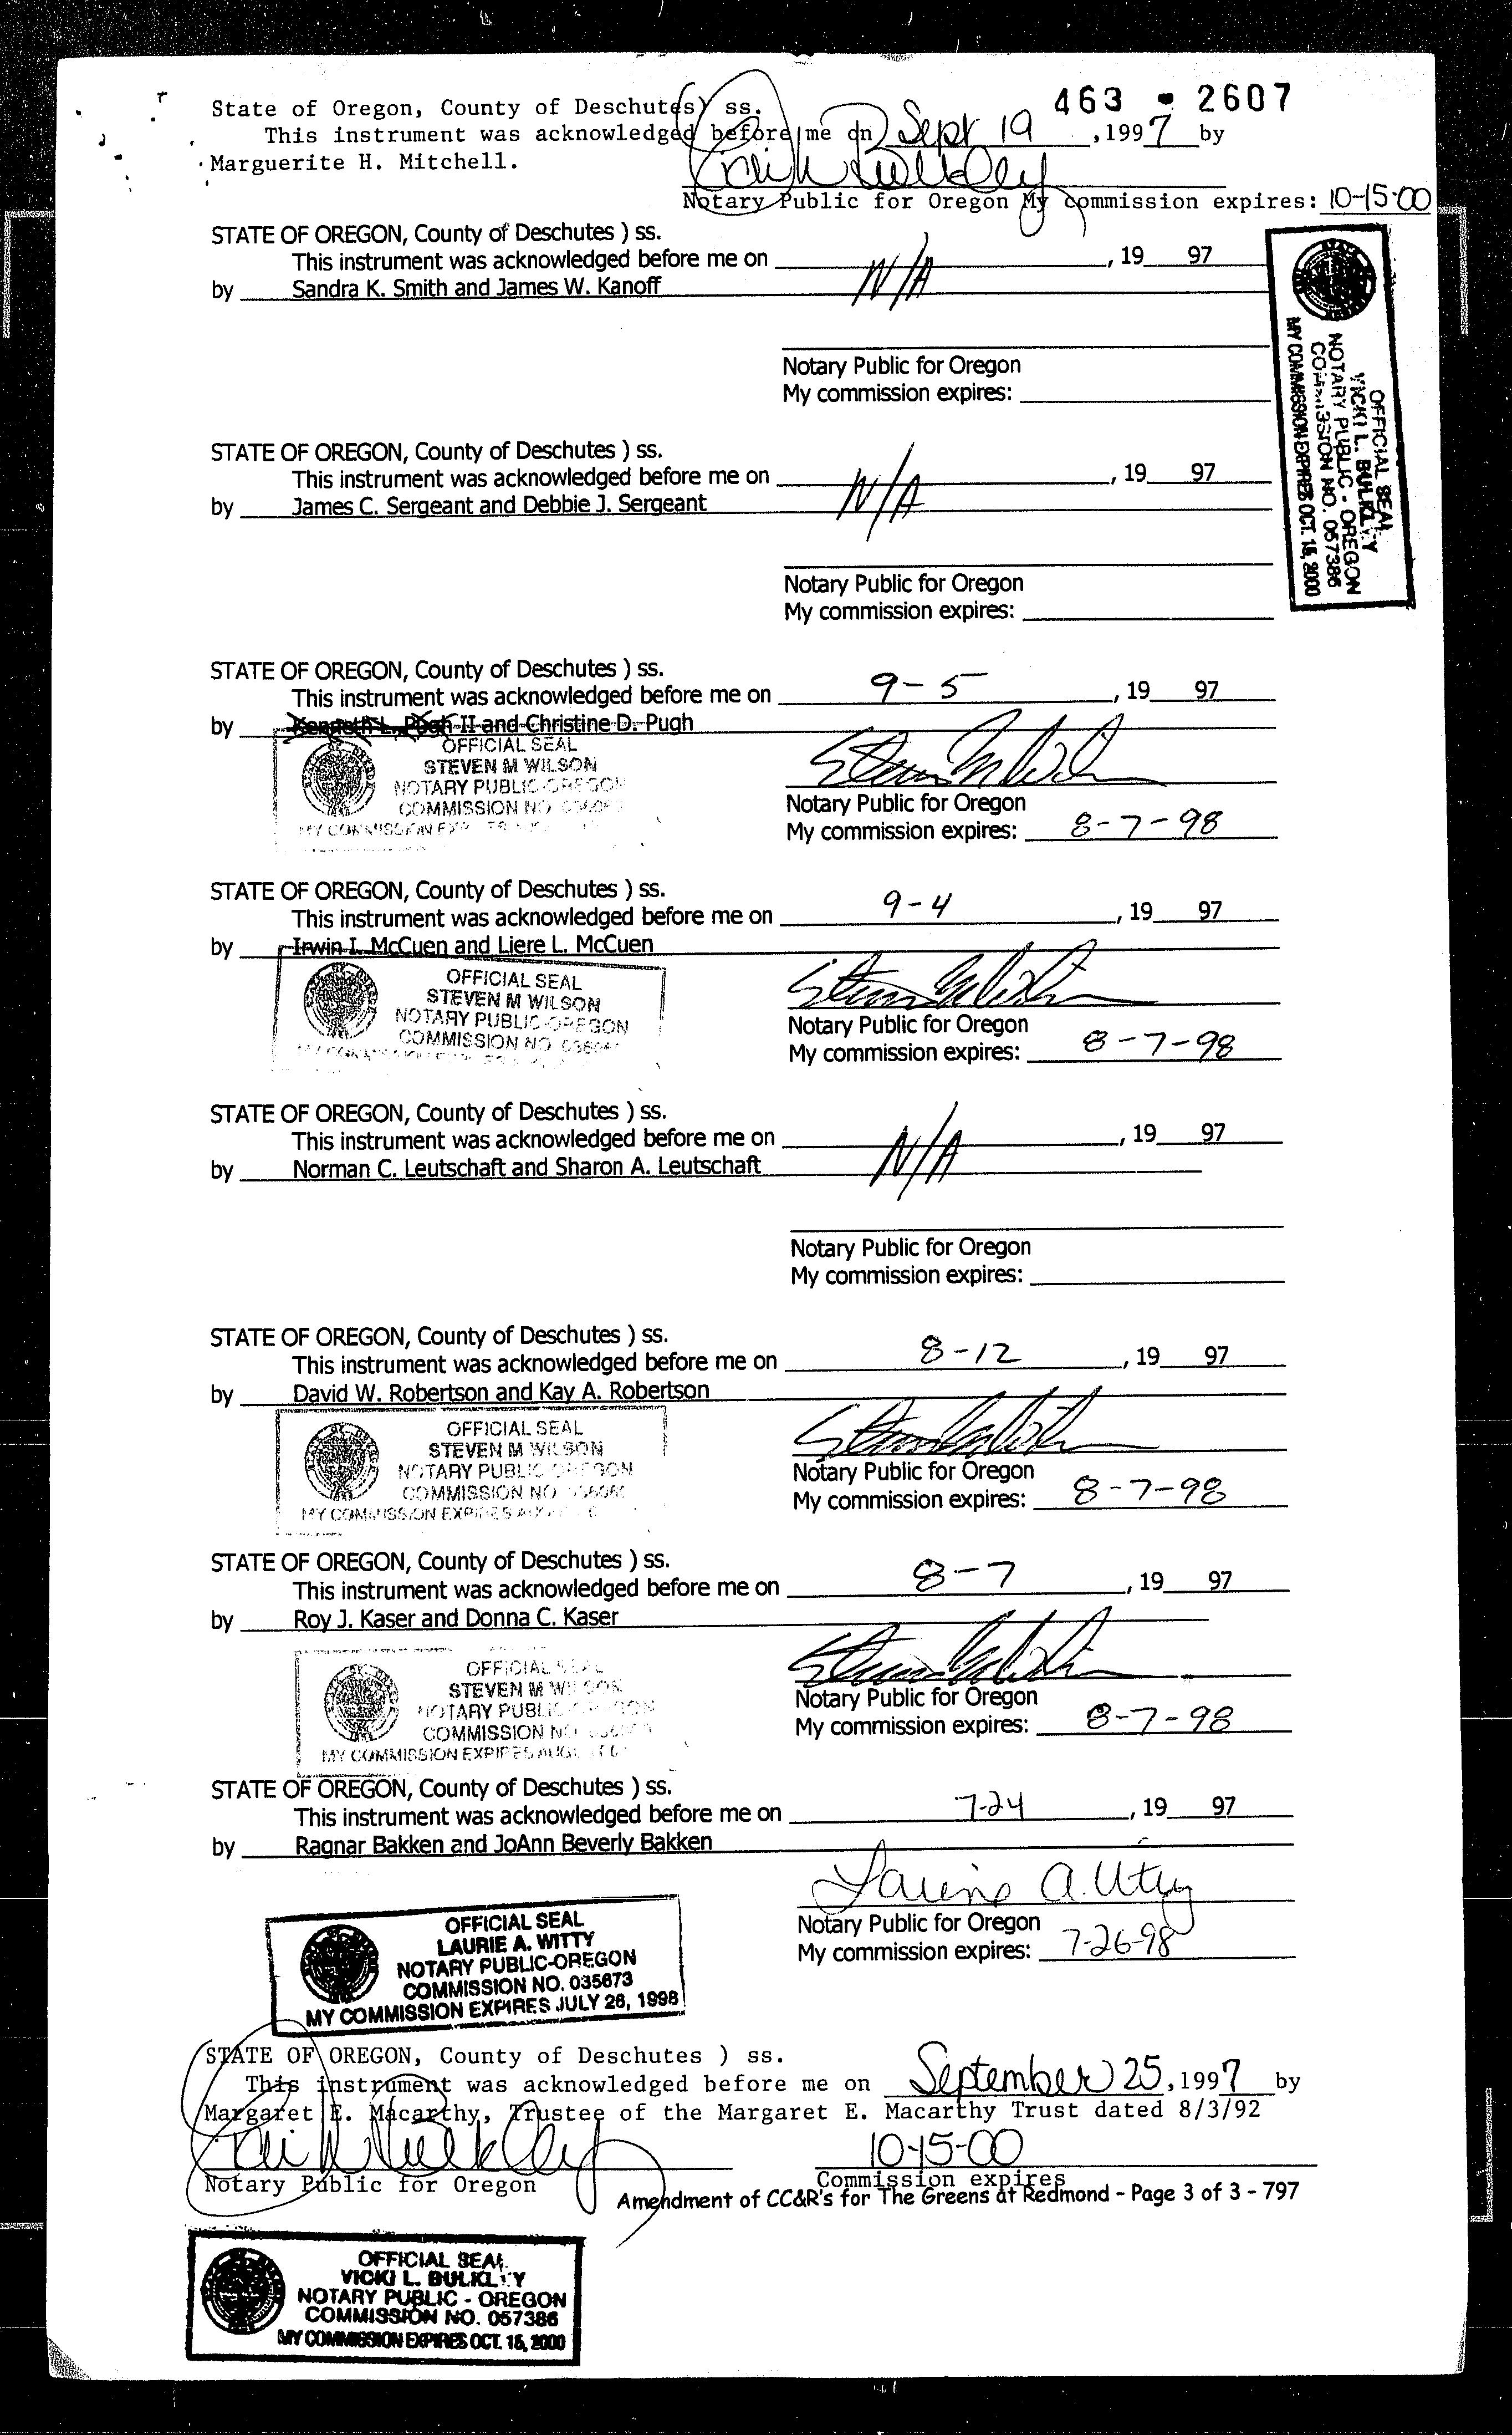 463 - 2607
State of Oregon, County of Deschutes) ss.
This instrument was acknowledged before me on Sept 19 ,1997 by
Marguerite H. Mitchell.
Notary Public for Oregon My commission expires: 10-15-00
STATE OF OREGON, County of Deschutes ) ss.
This instrument was acknowledged before me on N/A , 19 97
by Sandra K. Smith and James W. Kanoff
Notary Public for Oregon
My commission expires:
OFFICIAL SEAL
VICKI L. BULKLEY
NOTARY PUBLIC - OREGON
COMMISSION NO. 057386
MY COMMISSION EXPIRES OCT. 15, 2000
STATE OF OREGON, County of Deschutes ) ss.
This instrument was acknowledged before me on N/A , 19 97
by James C. Sergeant and Debbie J. Sergeant
Notary Public for Oregon
My commission expires:
STATE OF OREGON, County of Deschutes ) ss.
This instrument was acknowledged before me on 9-5 , 19 97
by Kenneth L. Pugh II and Christine D. Pugh
OFFICIAL SEAL
STEVEN M WILSON
NOTARY PUBLIC-OREGON
COMMISSION NO
MY COMMISSION
Notary Public for Oregon
My commission expires: 8-7-98
STATE OF OREGON, County of Deschutes ) ss.
This instrument was acknowledged before me on 9-4 , 19 97
by Irwin I. McCuen and Liere L. McCuen
OFFICIAL SEAL
STEVEN M WILSON
NOTARY PUBLIC-OREGON
COMMISSION NO
Notary Public for Oregon
My commission expires: 8-7-98
STATE OF OREGON, County of Deschutes ) ss.
This instrument was acknowledged before me on N/A , 19 97
by Norman C. Leutschaft and Sharon A. Leutschaft
Notary Public for Oregon
My commission expires:
STATE OF OREGON, County of Deschutes ) ss.
This instrument was acknowledged before me on 8-12 , 19 97
by David W. Robertson and Kay A. Robertson
OFFICIAL SEAL
STEVEN M WILSON
NOTARY PUBLIC-OREGON
COMMISSION NO
MY COMMISSION EXPIRES
Notary Public for Oregon
My commission expires: 8-7-98
STATE OF OREGON, County of Deschutes ) ss.
This instrument was acknowledged before me on 8-7 , 19 97
by Roy J. Kaser and Donna C. Kaser
OFFICIAL SEAL
STEVEN M WILSON
NOTARY PUBLIC-OREGON
COMMISSION NO
MY COMMISSION EXPIRES
Notary Public for Oregon
My commission expires: 8-7-98
STATE OF OREGON, County of Deschutes ) ss.
This instrument was acknowledged before me on 7-24 , 19 97
by Ragnar Bakken and JoAnn Beverly Bakken
Notary Public for Oregon
My commission expires: 7-26-98
OFFICIAL SEAL
LAURIE A. WITTY
NOTARY PUBLIC-OREGON
COMMISSION NO. 035673
MY COMMISSION EXPIRES JULY 26, 1998
STATE OF OREGON, County of Deschutes ) ss.
This instrument was acknowledged before me on September 25,1997 by
Margaret E. Macarthy, Trustee of the Margaret E. Macarthy Trust dated 8/3/92
10-15-00
Notary Public for Oregon Commission expires
Amendment of CC&R's for The Greens at Redmond - Page 3 of 3 - 797
OFFICIAL SEAL
VICKI L. BULKLEY
NOTARY PUBLIC - OREGON
COMMISSION NO. 057386
MY COMMISSION EXPIRES OCT. 15, 2000